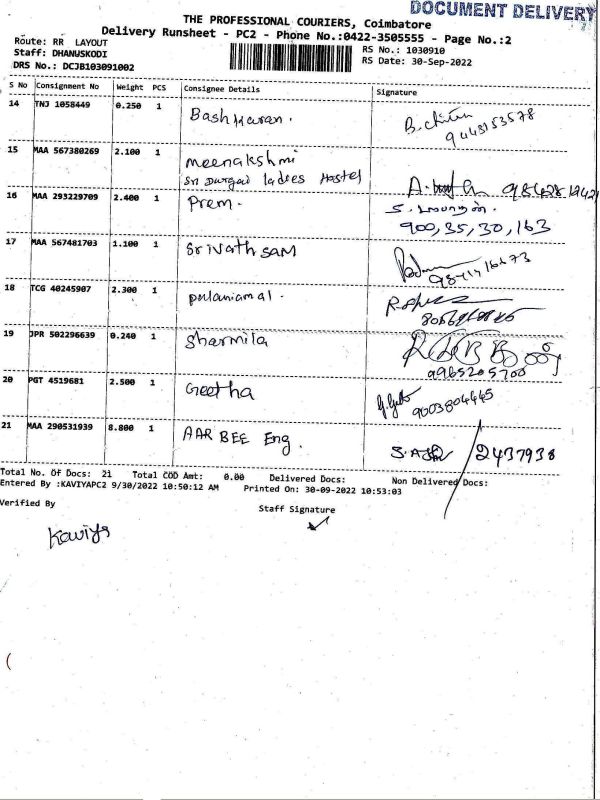 DOCUMENT DELIVERY
THE PROFESSIONAL COURIERS, Coimbatore
Delivery Runsheet - PC2 - Phone No.:0422-3505555 - Page No.:2
Route: RR LAYOUT
Staff: DHANUSKODI
DRS No.: DCJB103091002
RS No.: 1030910
RS Date: 30-Sep-2022
S No Consignment No Weight PCS Consignee Details Signature
14 TNJ 1058449 0.250 1 Bashkaran.
9443153578
15 MAA 567380269 2.100 1 meenakshmi
Sri Durgai ladies Hostel
16 MAA 293229709 2.400 1 Prem.
900,35,30,163
17 MAA 567481703 1.100 1 Srivathsam
18 TCG 40245907 2.300 1 palaniamal.
19 JPR 502296639 0.240 1 Sharmila
9965205700
20 PGT 4519681 2.500 1 Geetha
9003804445
21 MAA 290531939 8.800 1 AAR BEE Eng.
2437938
Total No. Of Docs: 21 Total COD Amt: 0.00 Delivered Docs: Non Delivered Docs:
Entered By :KAVIYAPC2 9/30/2022 10:50:12 AM Printed On: 30-09-2022 10:53:03
Verified By Staff Signature
Kaviya